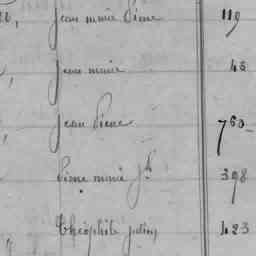 jean marie Pierre 119
jean marie 45
jean Pierre 760
Pierre marie jh 398
théophile julien 423